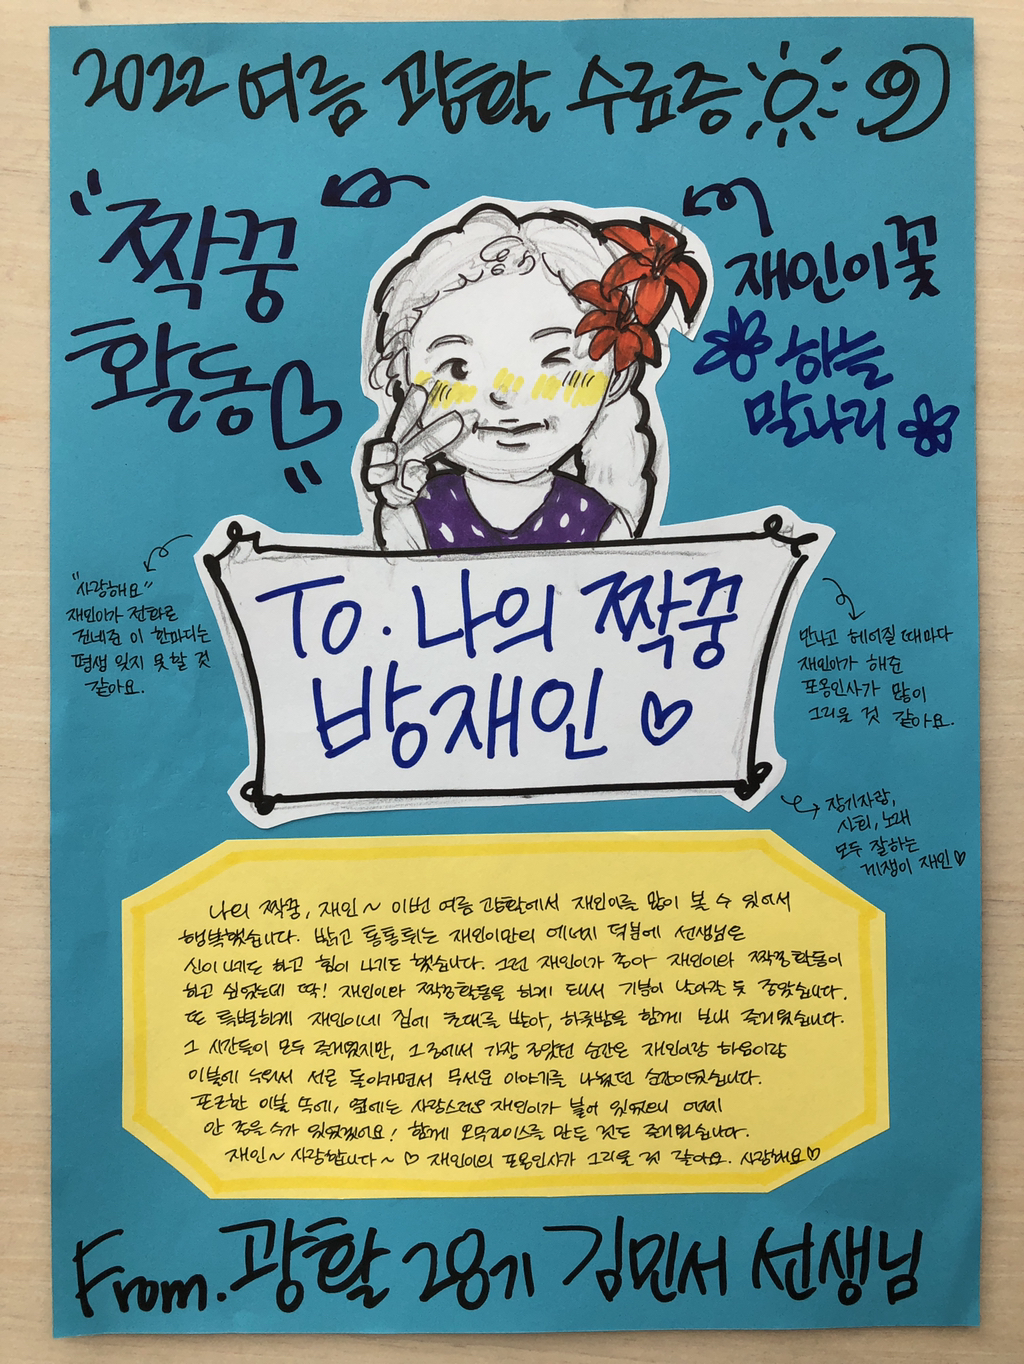 2022 여름 광활 수료증
"짝꿍
활동♡"
재인이 꽃
하늘
말나리
To. 나의 짝꿍
방재인♡
"사랑해요"
재인이가 전화로
건네준 이 한마디는
평생 잊지 못할 것
같아요.
만나고 헤어질 때마다
재인이가 해준
포옹인사가 많이
그리울 것 같아요.
장기자랑,
사회, 노래
모두 잘하는
재인♡
나의 짝꿍, 재인~ 이번 여름 광활에서 재인이를 많이 볼 수 있어서
행복했습니다. 밝고 통통튀는 재인이만의 에너지 덕분에 선생님은
신이 나기도 하고 힘이 나기도 했습니다. 그런 재인이가 좋아 재인이와 짝꿍활동이
하고 싶었는데 딱! 재인이와 짝꿍활동을 하게 돼서 기분이 날아갈 듯 좋았습니다.
또 특별하게 재인이네 집에 초대를 받아, 하룻밤을 함께 보내 즐거웠습니다.
그 시간들이 모두 즐거웠지만, 그 중에서 가장 좋았던 순간은 재인이랑 하음이랑
이불에 누워서 서로 돌아가면서 무서운 이야기를 나눴던 순간이었습니다.
포근한 이불 속에, 옆에는 사랑스러운 재인이가 붙어 있었으니 어찌
안 좋을 수가 있었겠어요! 함께 오므라이스를 만든 것도 즐거웠습니다.
재인~ 사랑합니다~♡ 재인이의 포옹인사가 그리울 것 같아요. 사랑해요♡
From. 광활 28기 김민서 선생님